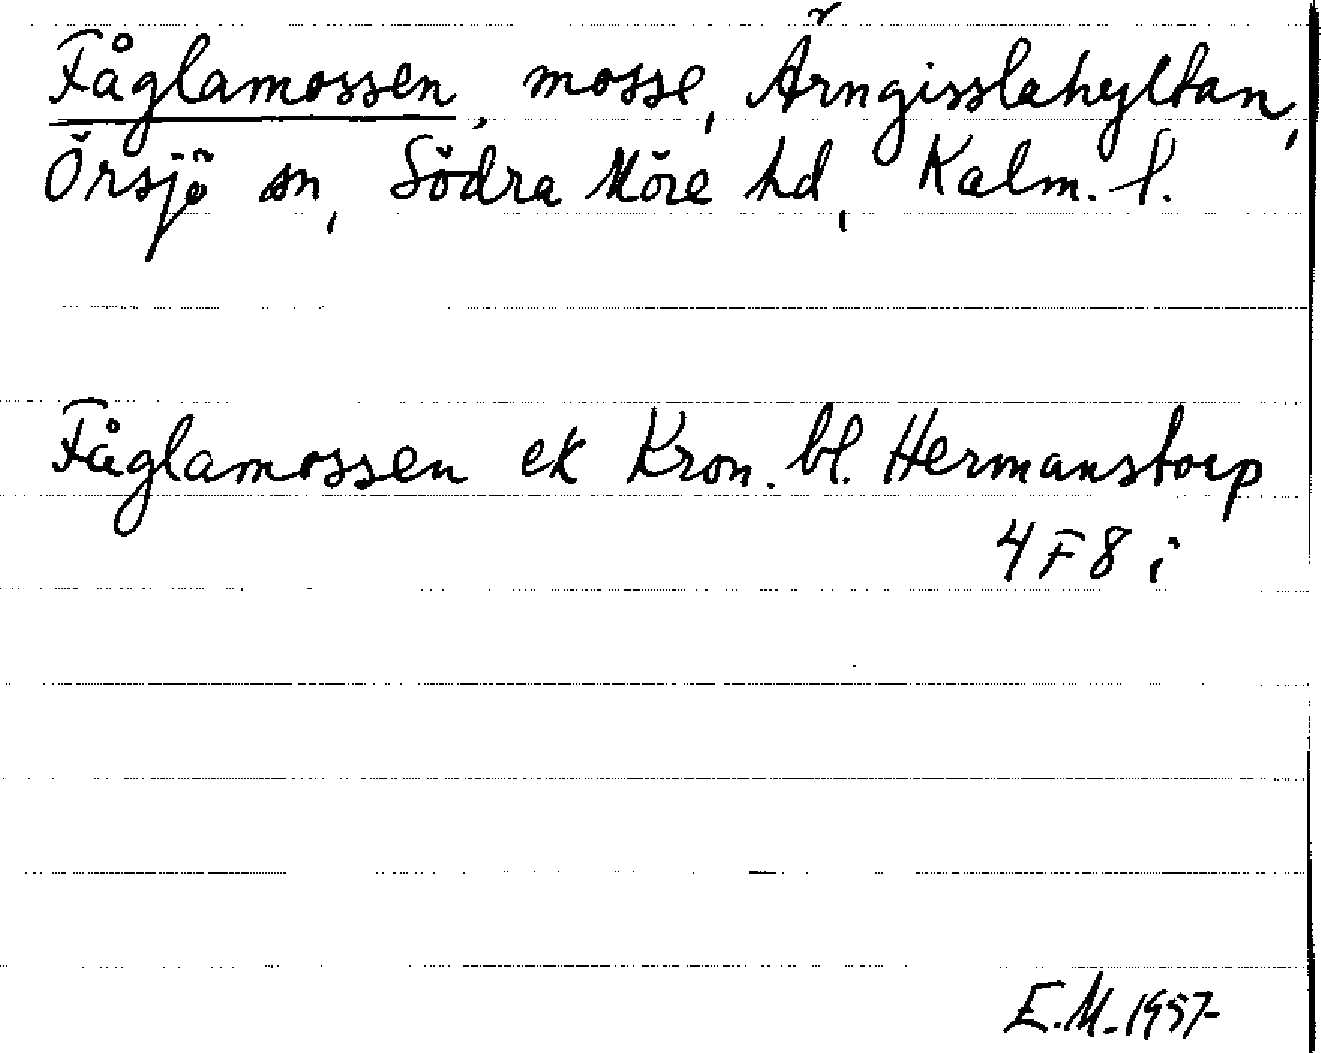 Fåglamossen, mosse, Ärngisslahyltan,
Örsjö sn, Södra Möre hd, Kalm. l.
Fåglamossen ek Kron. bl. Hermanstorp
4 F 8 i
E.M. 1957